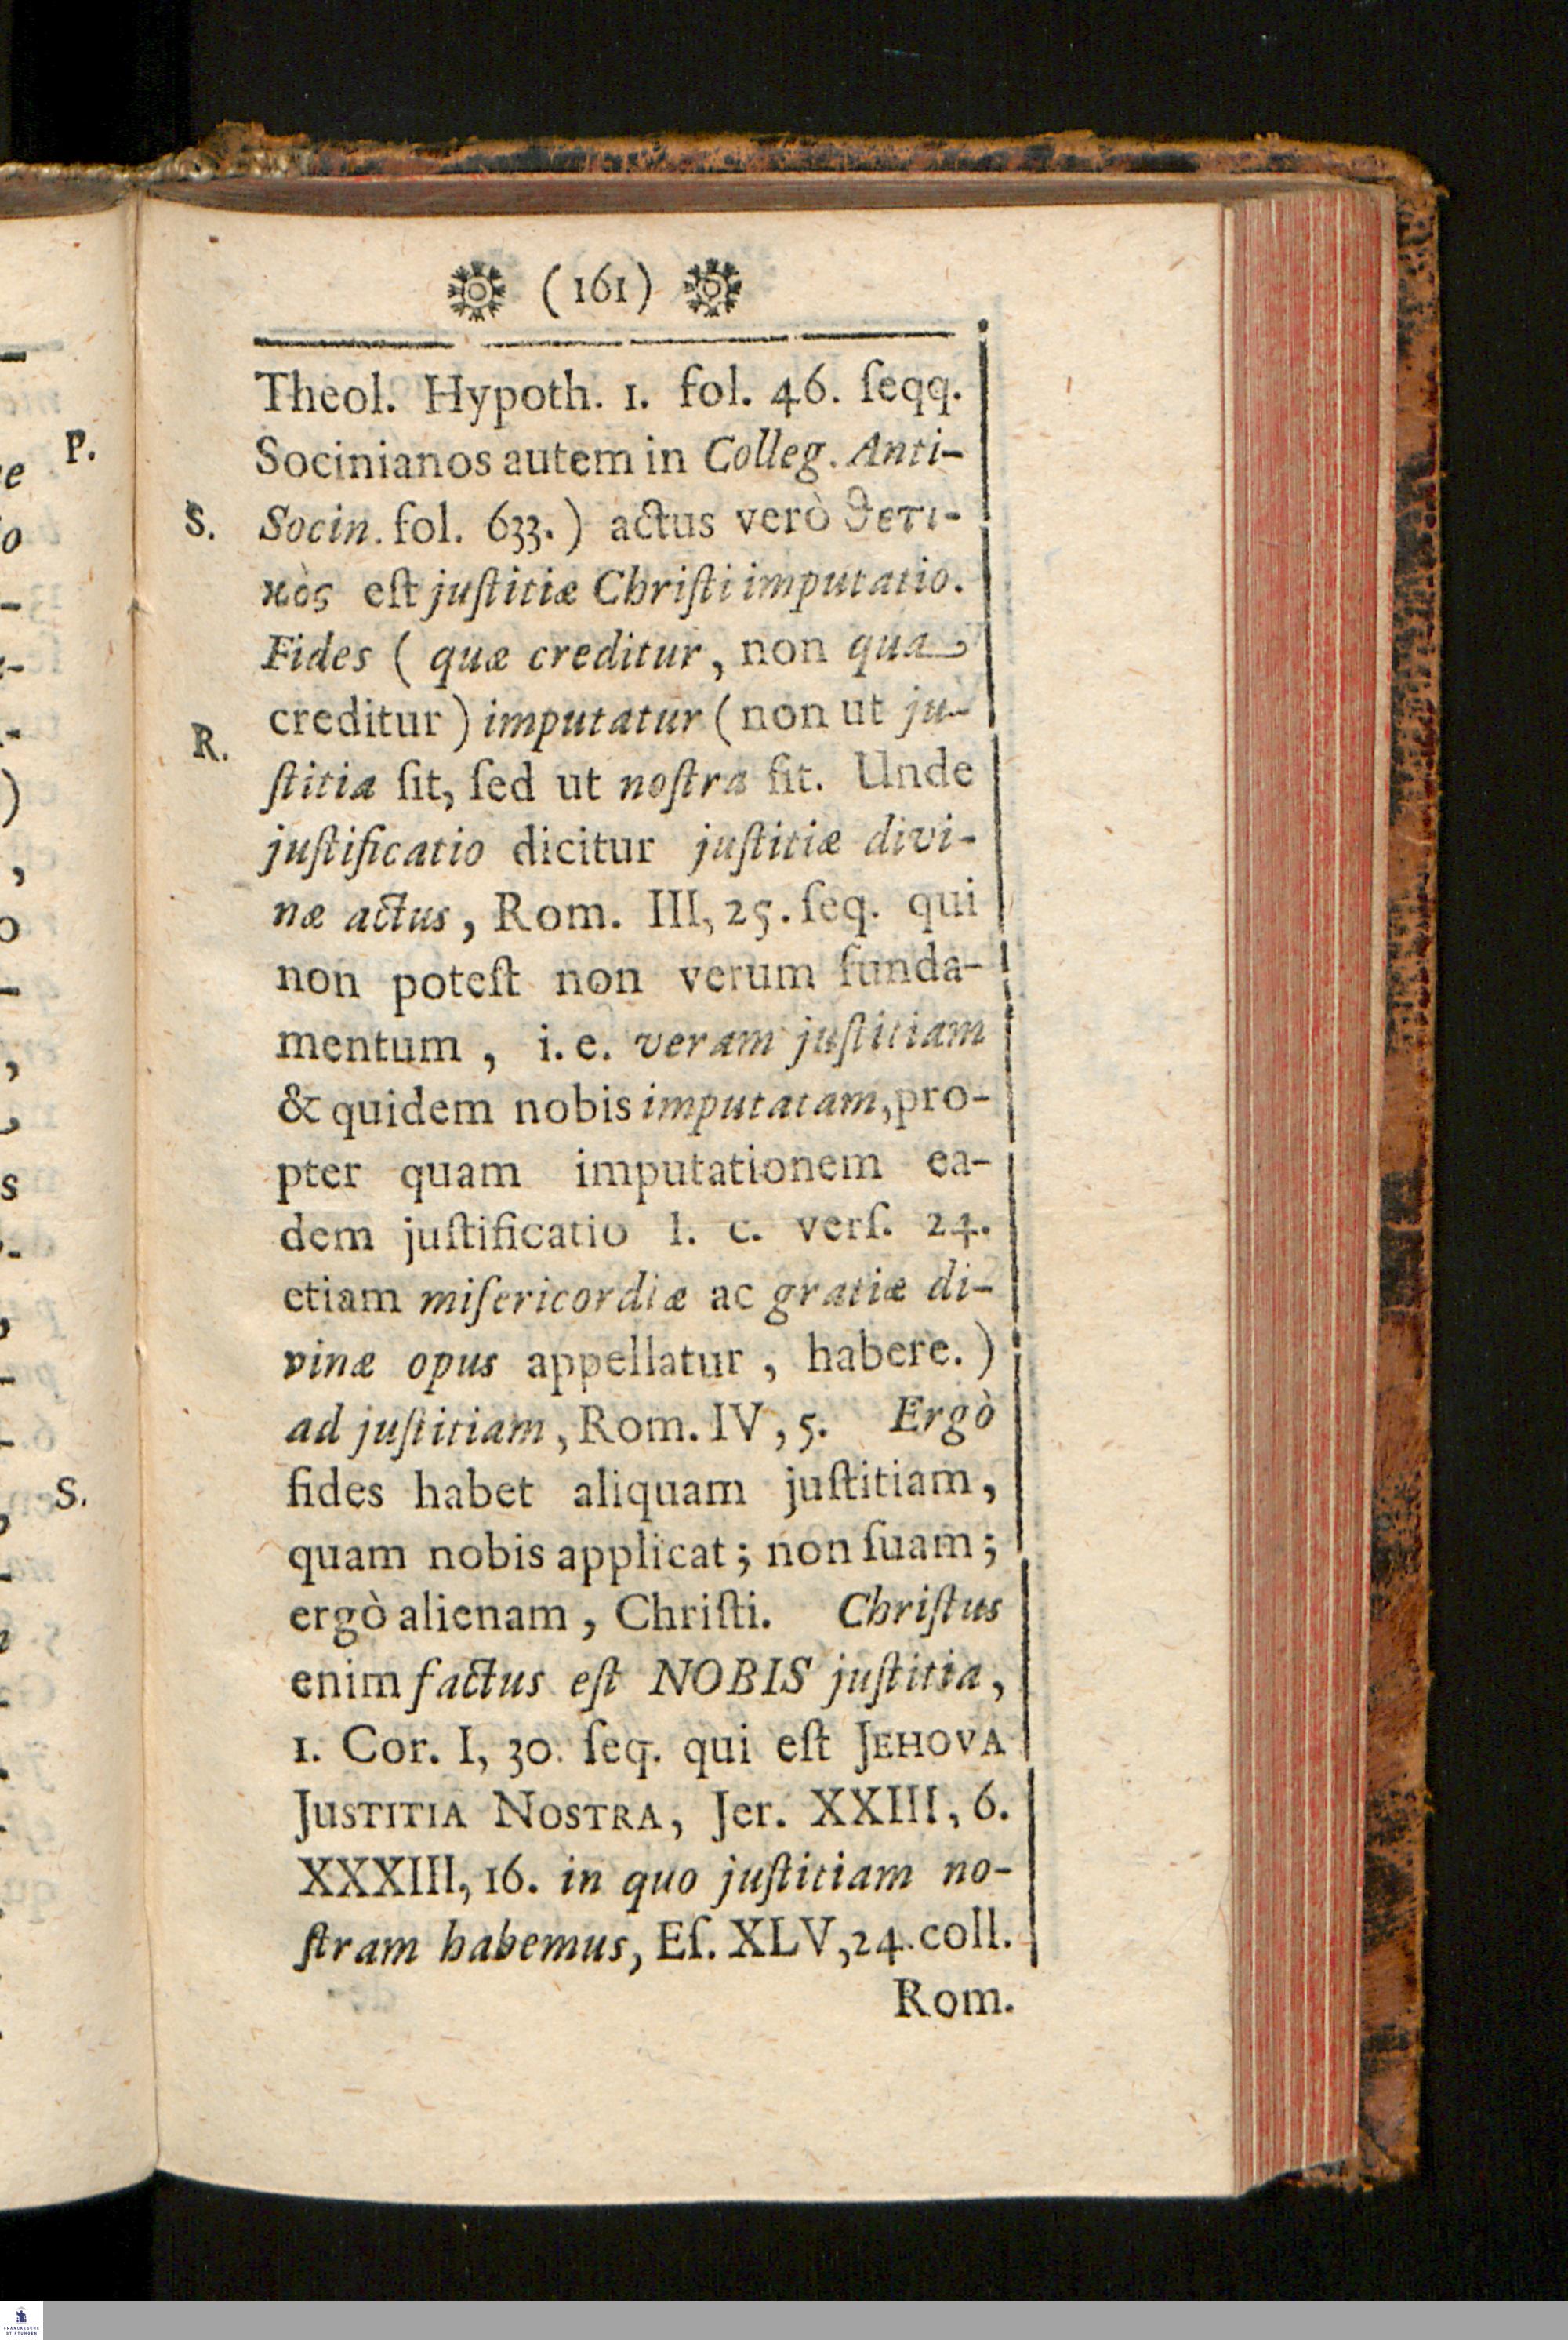 (161)
Theol. Hypoth. 1. fol. 46. ſeqq.
Socinianos autem in Colleg. Anti-
S. Socin. fol. 633.) actus verò ϑετι-
κὸς eſt juſtitiæ Chriſti imputatio.
Fides ( quæ creditur, non qua
creditur) imputatur (non ut ju-
R.
ſtitia ſit, ſed ut noſtra ſit. Unde
juſtificatio dicitur juſtitiæ divi-
næ actus, Rom. III, 25. ſeq. qui
non poteſt non verum funda-
mentum, i. e. veram juſtitiam
& quidem nobis imputatam, pro-
pter quam imputationem ea-
dem juſtificatio l. c. verſ. 24.
etiam miſericordiæ ac gratiæ di-
vinæ opus appellatur, habere.)
ad juſtitiam, Rom. IV, 5. Ergò
fides habet aliquam juſtitiam,
quam nobis applicat; non ſuam;
ergò alienam, Chriſti. Chriſtus
enim factus eſt NOBIS juſtitia,
1. Cor. I, 30. ſeq. qui eſt JEHOVA
JUSTITIA NOSTRA, Jer. XXIII, 6.
XXXIII, 16. in quo juſtitiam no-
ſtram habemus, Eſ. XLV, 24. coll.
Rom.
P.
S.
FRANCKESCHE
STIFTUNGEN